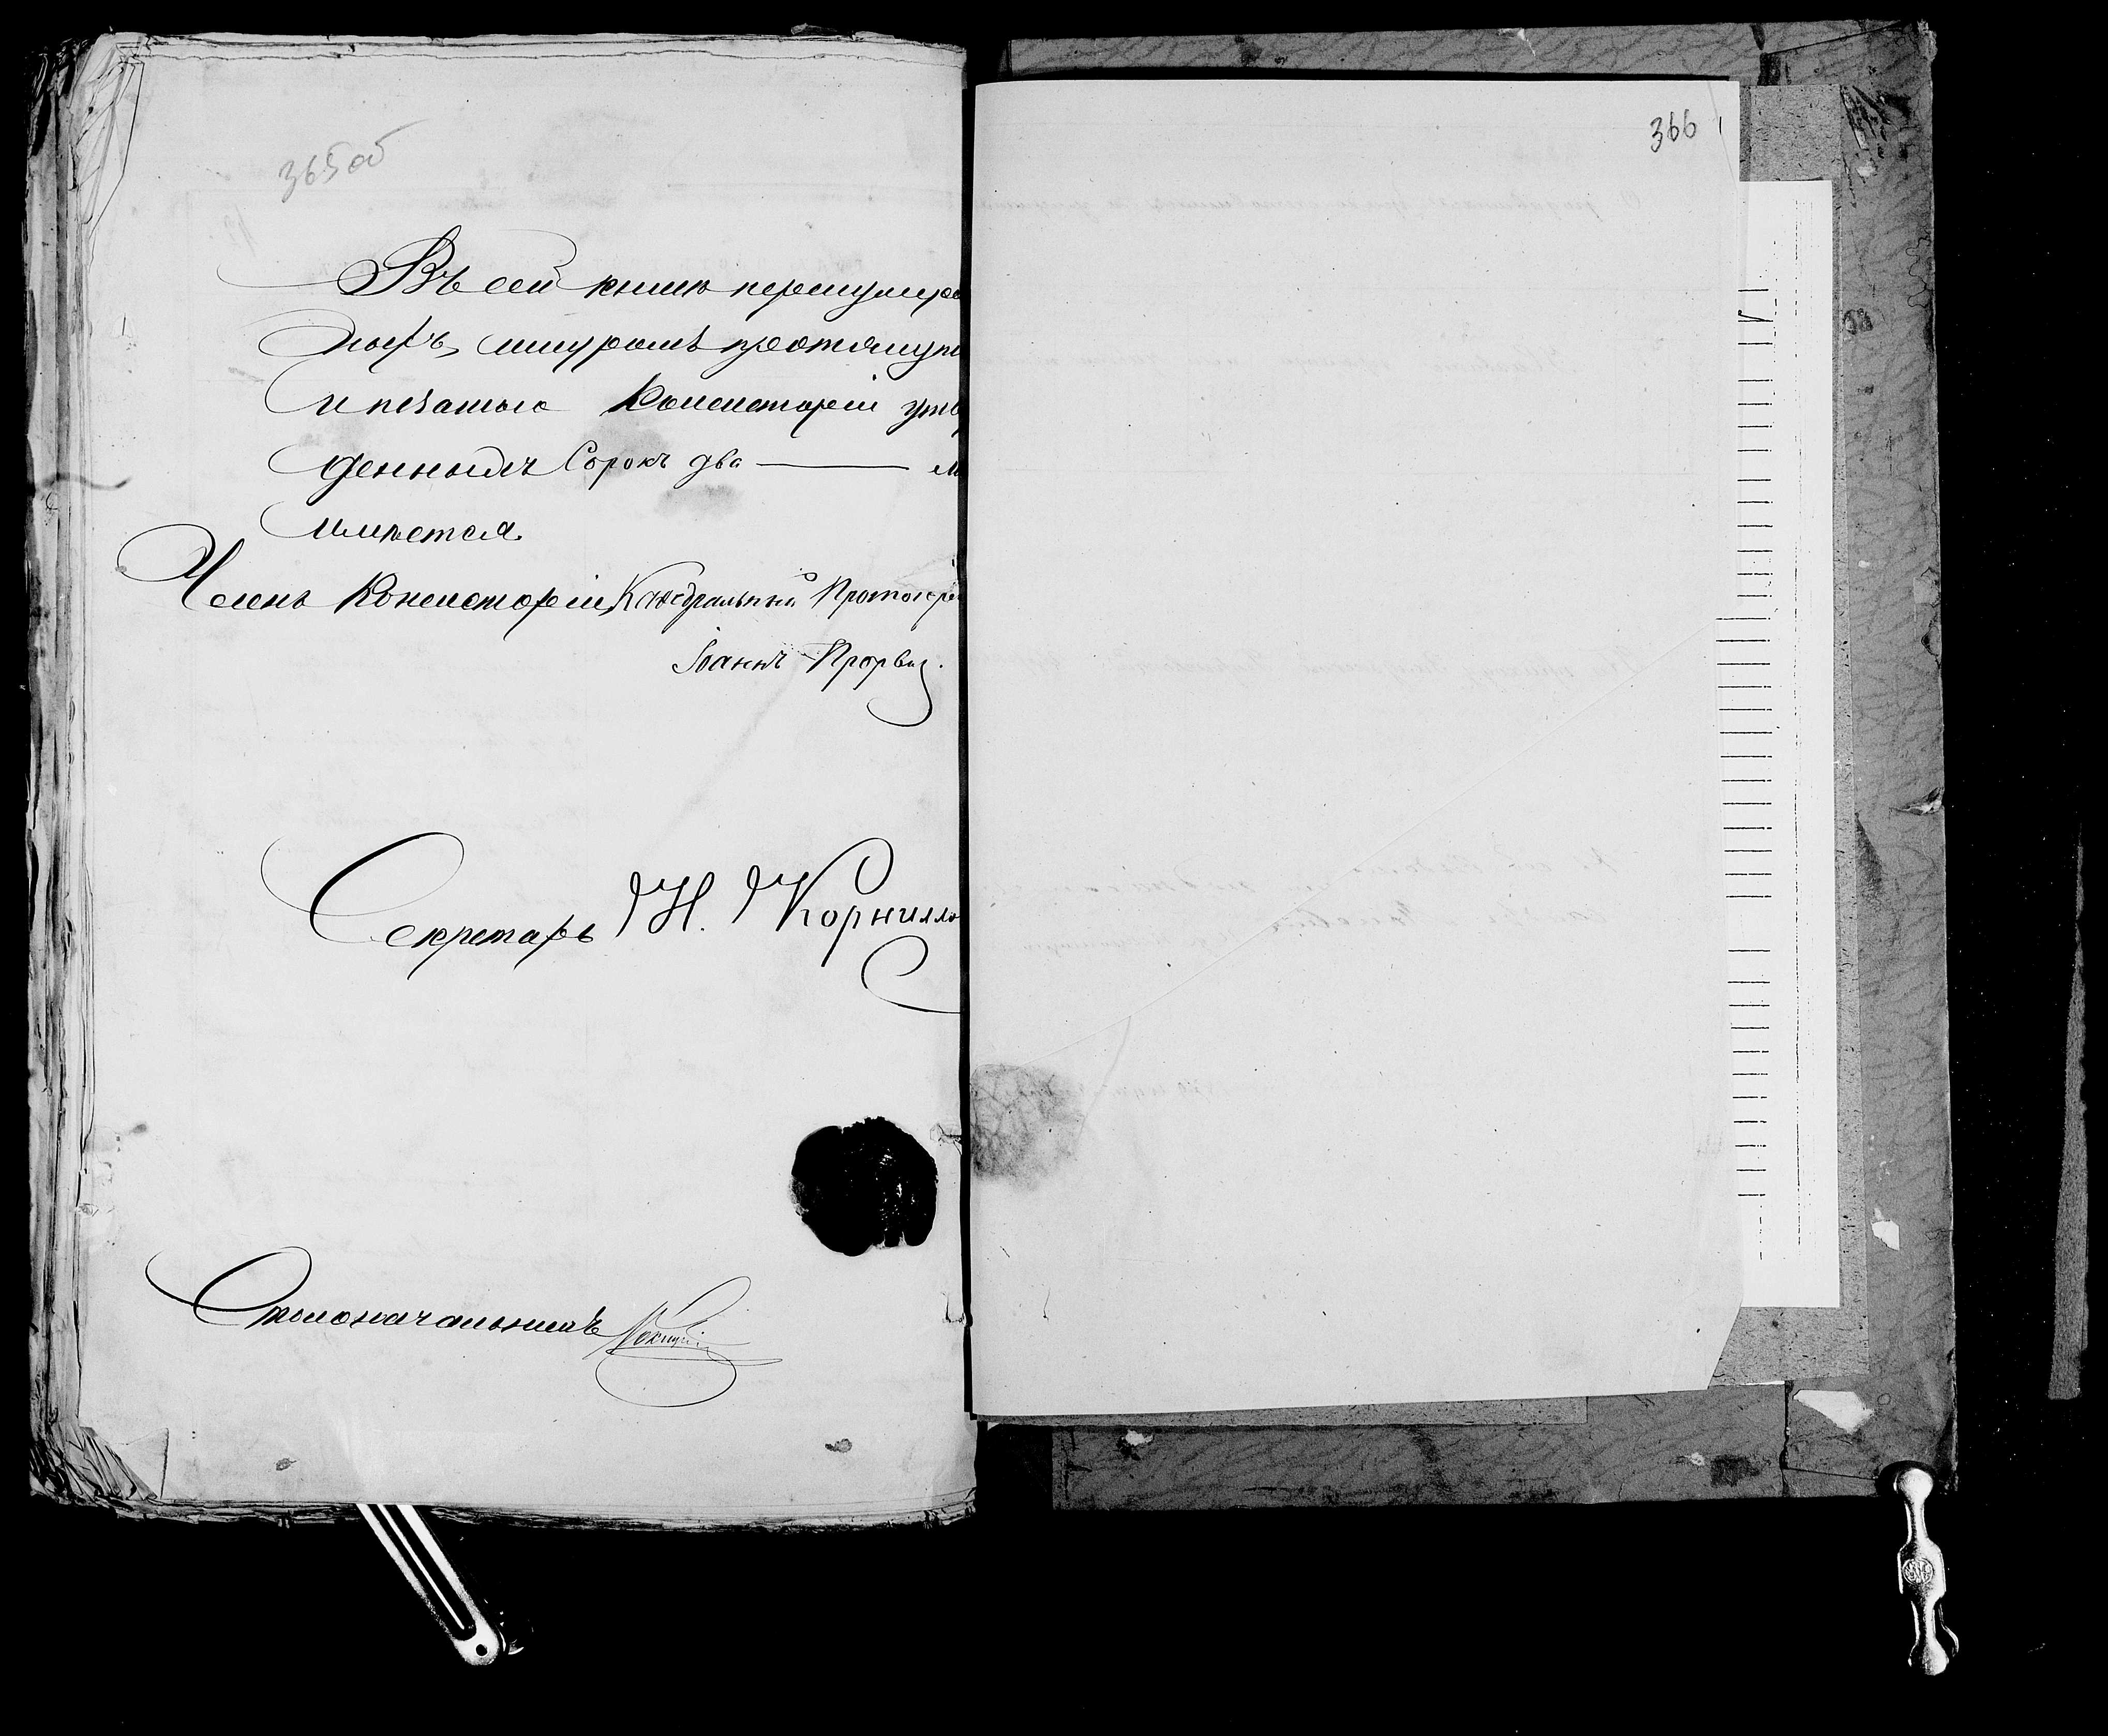 365об
Въ сей книгѣ перенумеро
ныхъ, шнуромъ протянуты
и печатью Консисторіи утв
денныхъ Сорокъ два
имѣется.
Членъ Консисторіи Каѳедральный Протоіере
Іоаннъ Прорвич
Секретарь Н. Корнилло
Столоначальникъ
366